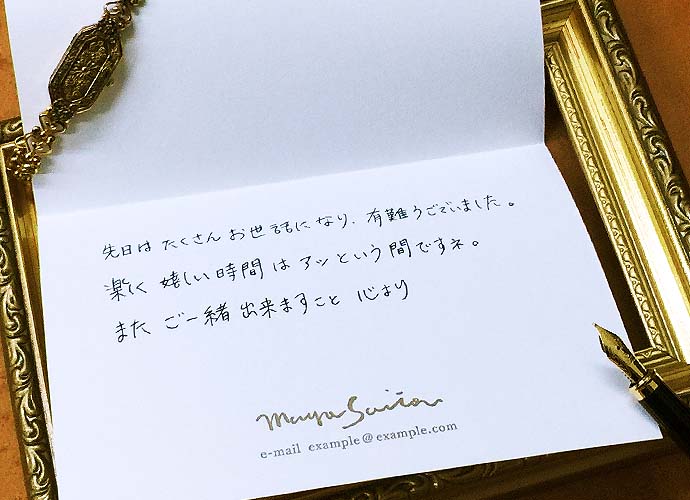 先日は たくさん お世話になり、有難うございました。
楽しく 嬉しい 時間は アッという間ですネ。
また ご一緒出来ますこと 心より
Maya Saito
e-mail example@example.com